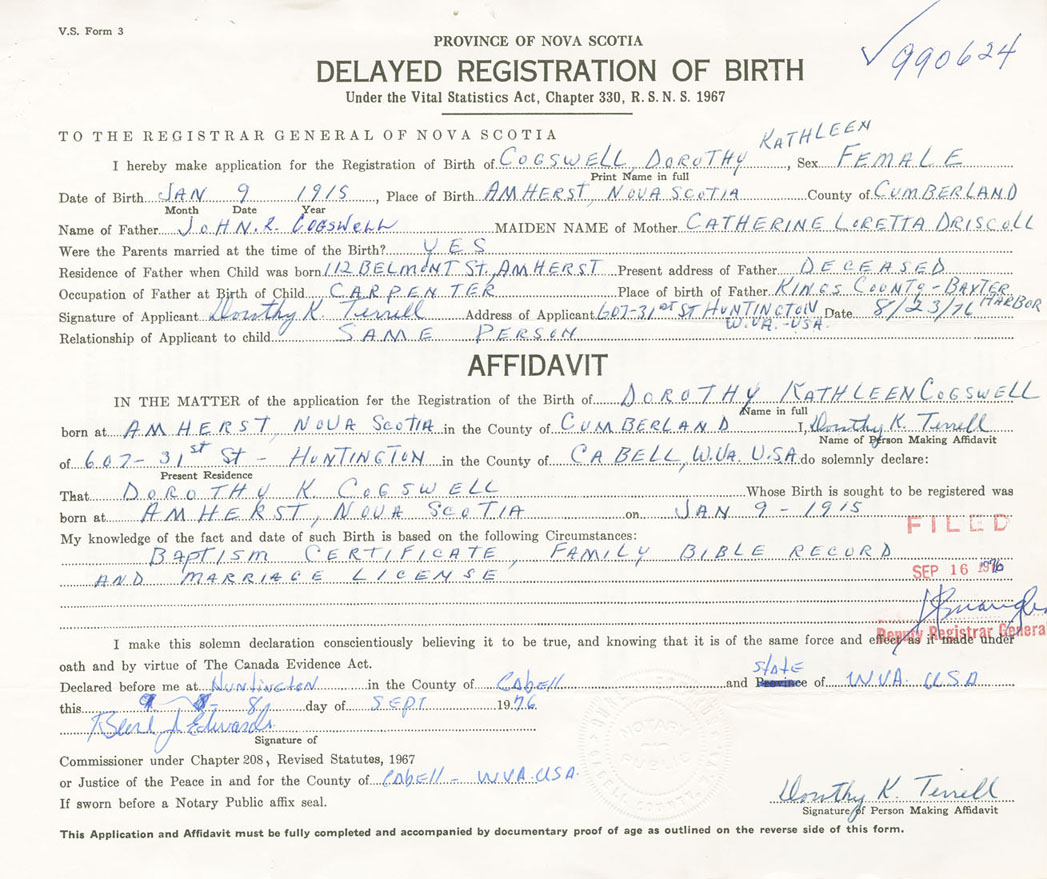 V.S. Form 3
990624
PROVINCE OF NOVA SCOTIA
DELAYED REGISTRATION OF BIRTH
Under the Vital Statistics Act, Chapter 330, R.S.N.S. 1967
TO THE REGISTRAR GENERAL OF NOVA SCOTIA
KATHLEEN
I hereby make application for the Registration of Birth of COGSWELL, DOROTHY, Sex FEMALE
Print Name in full
Date of Birth JAN 9 1915, Place of Birth AMHERST, NOVA SCOTIA County of CUMBERLAND
Month Date Year
Name of Father JOHN.R. COGSWELL MAIDEN NAME of Mother CATHERINE LORETTA DRISCOLL
Were the Parents married at the time of the Birth? YES
Residence of Father when Child was born 112 BELMONT ST. AMHERST Present address of Father DECEASED
Occupation of Father at Birth of Child CARPENTER Place of birth of Father KINGS COUNTY-BAXTER
HARBOR
Signature of Applicant Dorothy K. Terrell Address of Applicant 607-31st ST HUNTINGTON Date 8/23/76
W.VA.-USA.
Relationship of Applicant to child SAME PERSON
AFFIDAVIT
IN THE MATTER of the application for the Registration of the Birth of DOROTHY KATHLEEN COGSWELL
Name in full
born at AMHERST, NOVA SCOTIA in the County of CUMBERLAND I, Dorothy K. Terrell
Name of Person Making Affidavit
of 607-31st St - HUNTINGTON in the County of CABELL, W.VA. U.SA. do solemnly declare:
Present Residence
That DOROTHY K. COGSWELL Whose Birth is sought to be registered was
born at AMHERST, NOVA SCOTIA on JAN 9-1915
FILED
My knowledge of the fact and date of such Birth is based on the following Circumstances:
BAPTISM CERTIFICATE, FAMILY BIBLE RECORD
AND MARRIAGE LICENSE
SEP 16 1976
Deputy Registrar General
I make this solemn declaration conscientiously believing it to be true, and knowing that it is of the same force and effect as if made under
oath and by virtue of The Canada Evidence Act.
STATE
Declared before me at HUNTINGTON in the County of CABELL and Province of W.VA. USA
this 8 day of SEPT 1976
Signature of
Commissioner under Chapter 208, Revised Statutes, 1967
or Justice of the Peace in and for the County of CABELL - W.VA. USA.
If sworn before a Notary Public affix seal.
Dorothy K. Terrell
Signature of Person Making Affidavit
This Application and Affidavit must be fully completed and accompanied by documentary proof of age as outlined on the reverse side of this form.